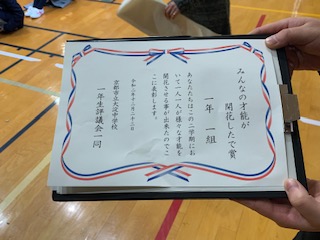 みんなの才能が
開花したで賞
一年 一組
あなたたちはこの二学期にお
いて一人一人が様々な才能を
開花させる事が出来たのでこ
こに表彰します。
令和二年十二月二十三日
京都市立大淀中学校
一年生評議会一同